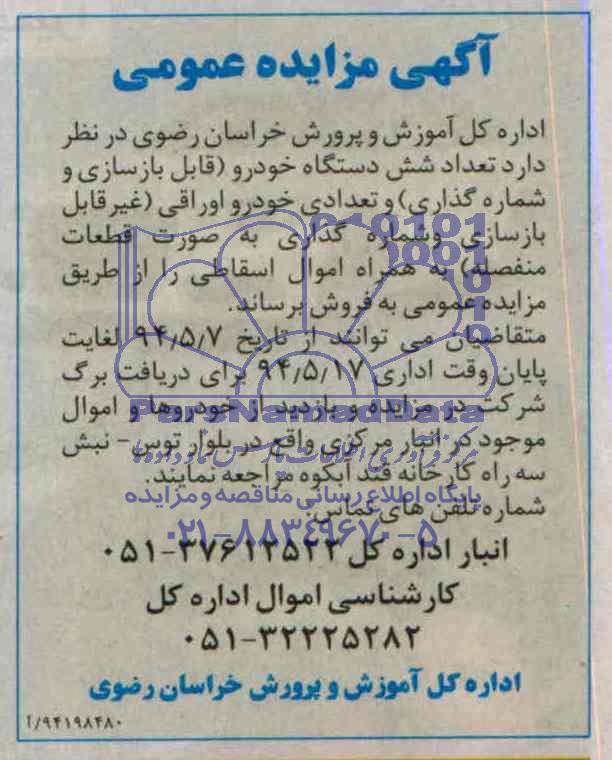 آگهی مزایده عمومی
اداره کل آموزش و پرورش خراسان رضوی در نظر
دارد تعداد شش دستگاه خودرو (قابل بازسازی و
شماره گذاری) و تعدادی خودرو اوراقی (غیرقابل
بازسازی وشماره گذاری به صورت قطعات
منفصله) به همراه اموال اسقاطی را از طریق
مزایده عمومی به فروش برساند.
متقاضیان می توانند از تاریخ ۹۴/۵/۷ لغایت
پایان وقت اداری ۹۴/۵/۱۷ برای دریافت برگ
ParsNamadData
شرکت در مزایده و بازدید از خودروها و اموال
موجود در انبار مرکزی واقع در بلوار توس - نبش
سه راه کارخانه قند آبکوه مراجعه نمایند.
پایگاه اطلاع رسانی مناقصه و مزایده
شماره تلفن های تماس:
۰۲۱-۸۸۳۴۹۶۷۰-۵
انبار اداره کل ۳۷۶۱۲۵۲۲-۰۵۱
کارشناسی اموال اداره کل
۰۵۱-۳۲۲۲۵۲۸۲
اداره کل آموزش و پرورش خراسان رضوی
۹۴۱۹۸۴۸۰/آ